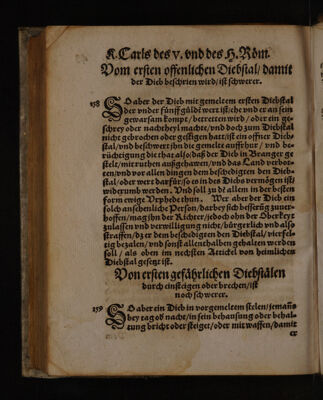 K. Carls des V. vnd des H. Röm.
Vom ersten offenlichen Diebstal / damit
der Dieb beschrien wird / ist schwerer.
158 SO aber der Dieb mit gemeltem ersten Diebstal
der vnder fünff güldē wert ist / ehe vnd er an sein
gewarsam kompt / betretten wird / oder ein ge-
schrey oder nachtheyl machte / vnd doch zum Diebstal
nicht gebrochen oder gestigen hatt / ist ein offner Dieb
stal / vnd beschwert jhn die gemelte auffrhur / vnd be-
rüchtigung die that also / daß der Dieb in Branger ge
stelt / mit ruthen außgehawen / vnd das Land verbot-
ten / vnd vor allen dingen dem beschedigten den Dieb-
stal / oder wert darfür / so es in des Diebs vermögen ist /
widerumb werden. Vnd soll zu dē allem in der besten
form ewige Vrphede thun. Wer aber der Dieb ein
solch ansehenliche Person / darbey sich besserūg zuuer-
hoffen / mag jhn der Richter / jedoch ohn der Oberkeyt
zulassen vnd verwilligung nicht / bürgerlich vnd also
straffen / dz er dem beschedigten den Diebstal / vierfel-
tig bezalen / vnd sonst allenthalben gehalten werden
soll / als oben im nechsten Artickel von heimlichen
Diebstal gesetzt ist.
Von ersten gefährlichen Diebstälen
durch einsteigen oder brechen / ist
noch schwerer.
159 SO aber ein Dieb in vorgemeltem stelen / jemāts
bey tag oď nacht / in sein behausung oder behal-
tung bricht oder steiget / oder mit waffen / damit
er